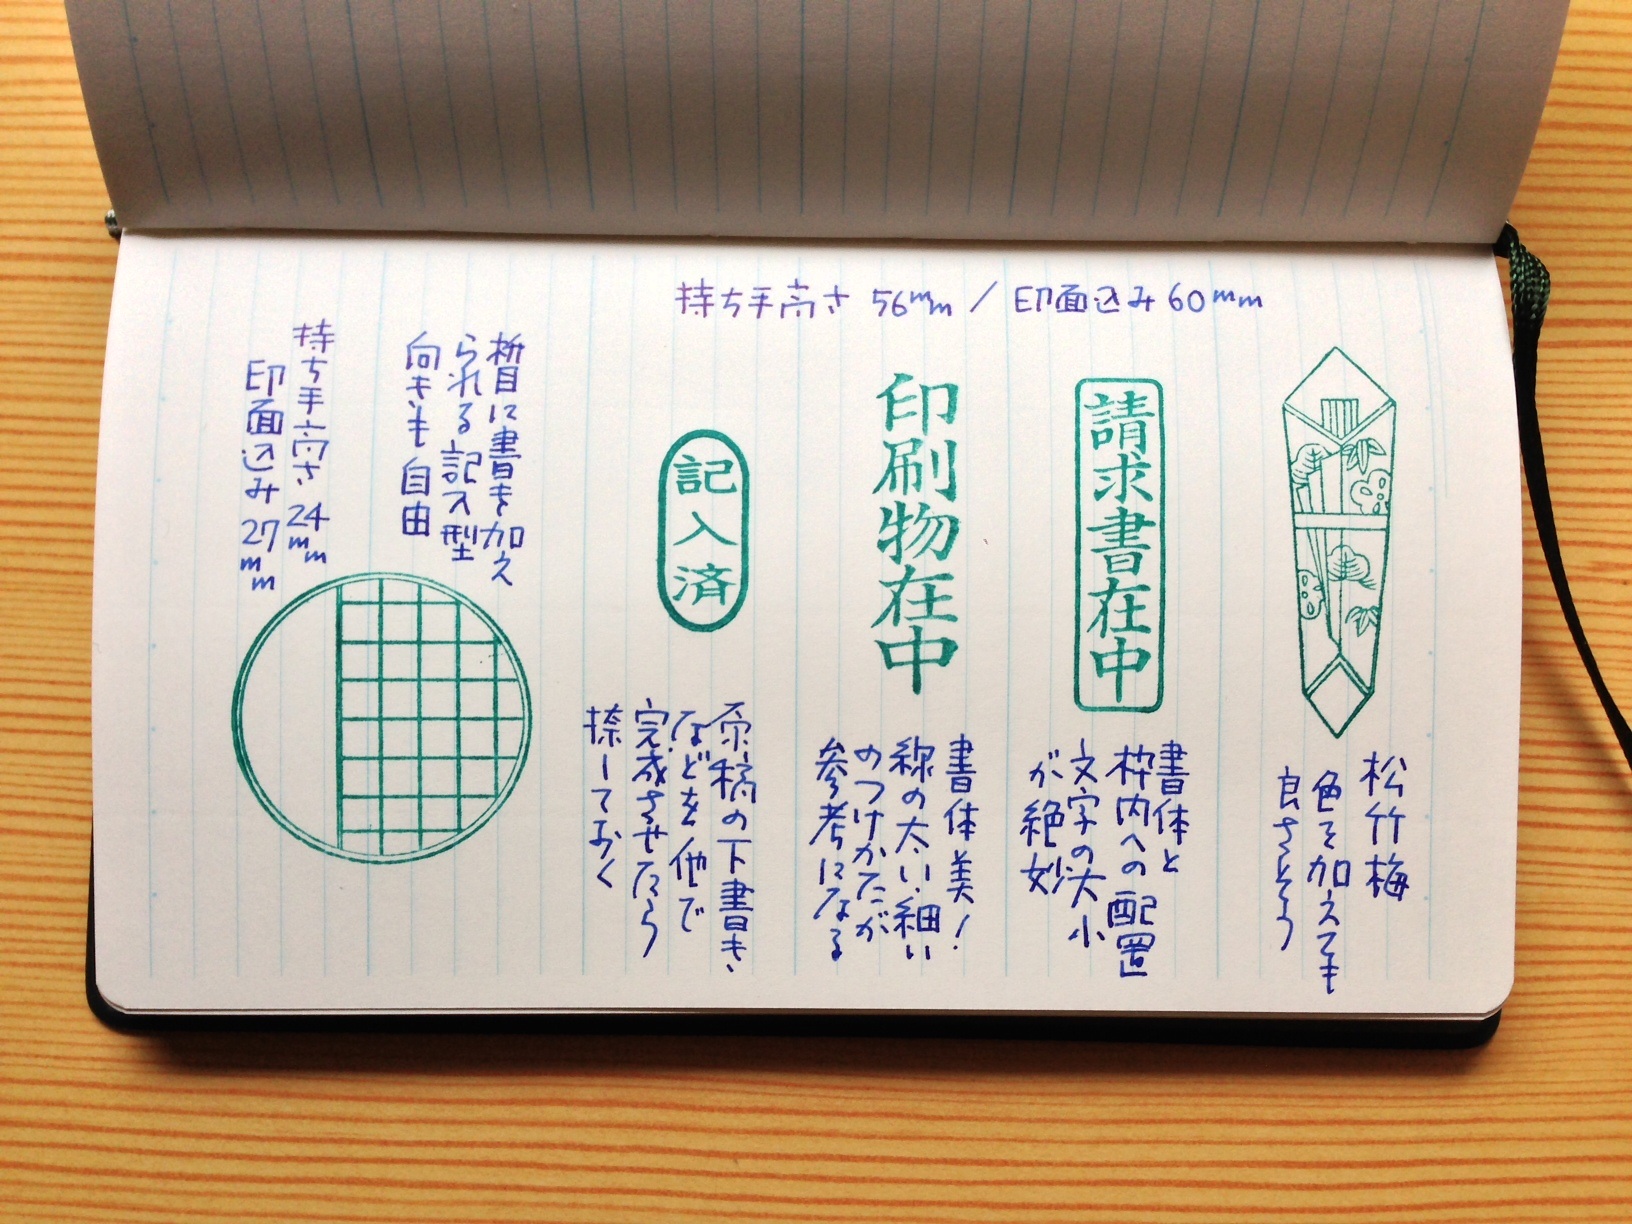 持ち手高さ 56mm / 印面込み60mm
松竹梅
色を加えても
良さそう
請求書在中
書体と
枠内への配置
文字の大小
が絶妙
印刷物在中
書体美!
線の太い細い
のつけかたが
参考になる
記入済
原稿の下書き、
などを他で
完成させたら
捺しておく
升目に書き加え
られる記入型
向きも自由
持ち手高さ 24mm
印面込み 27mm